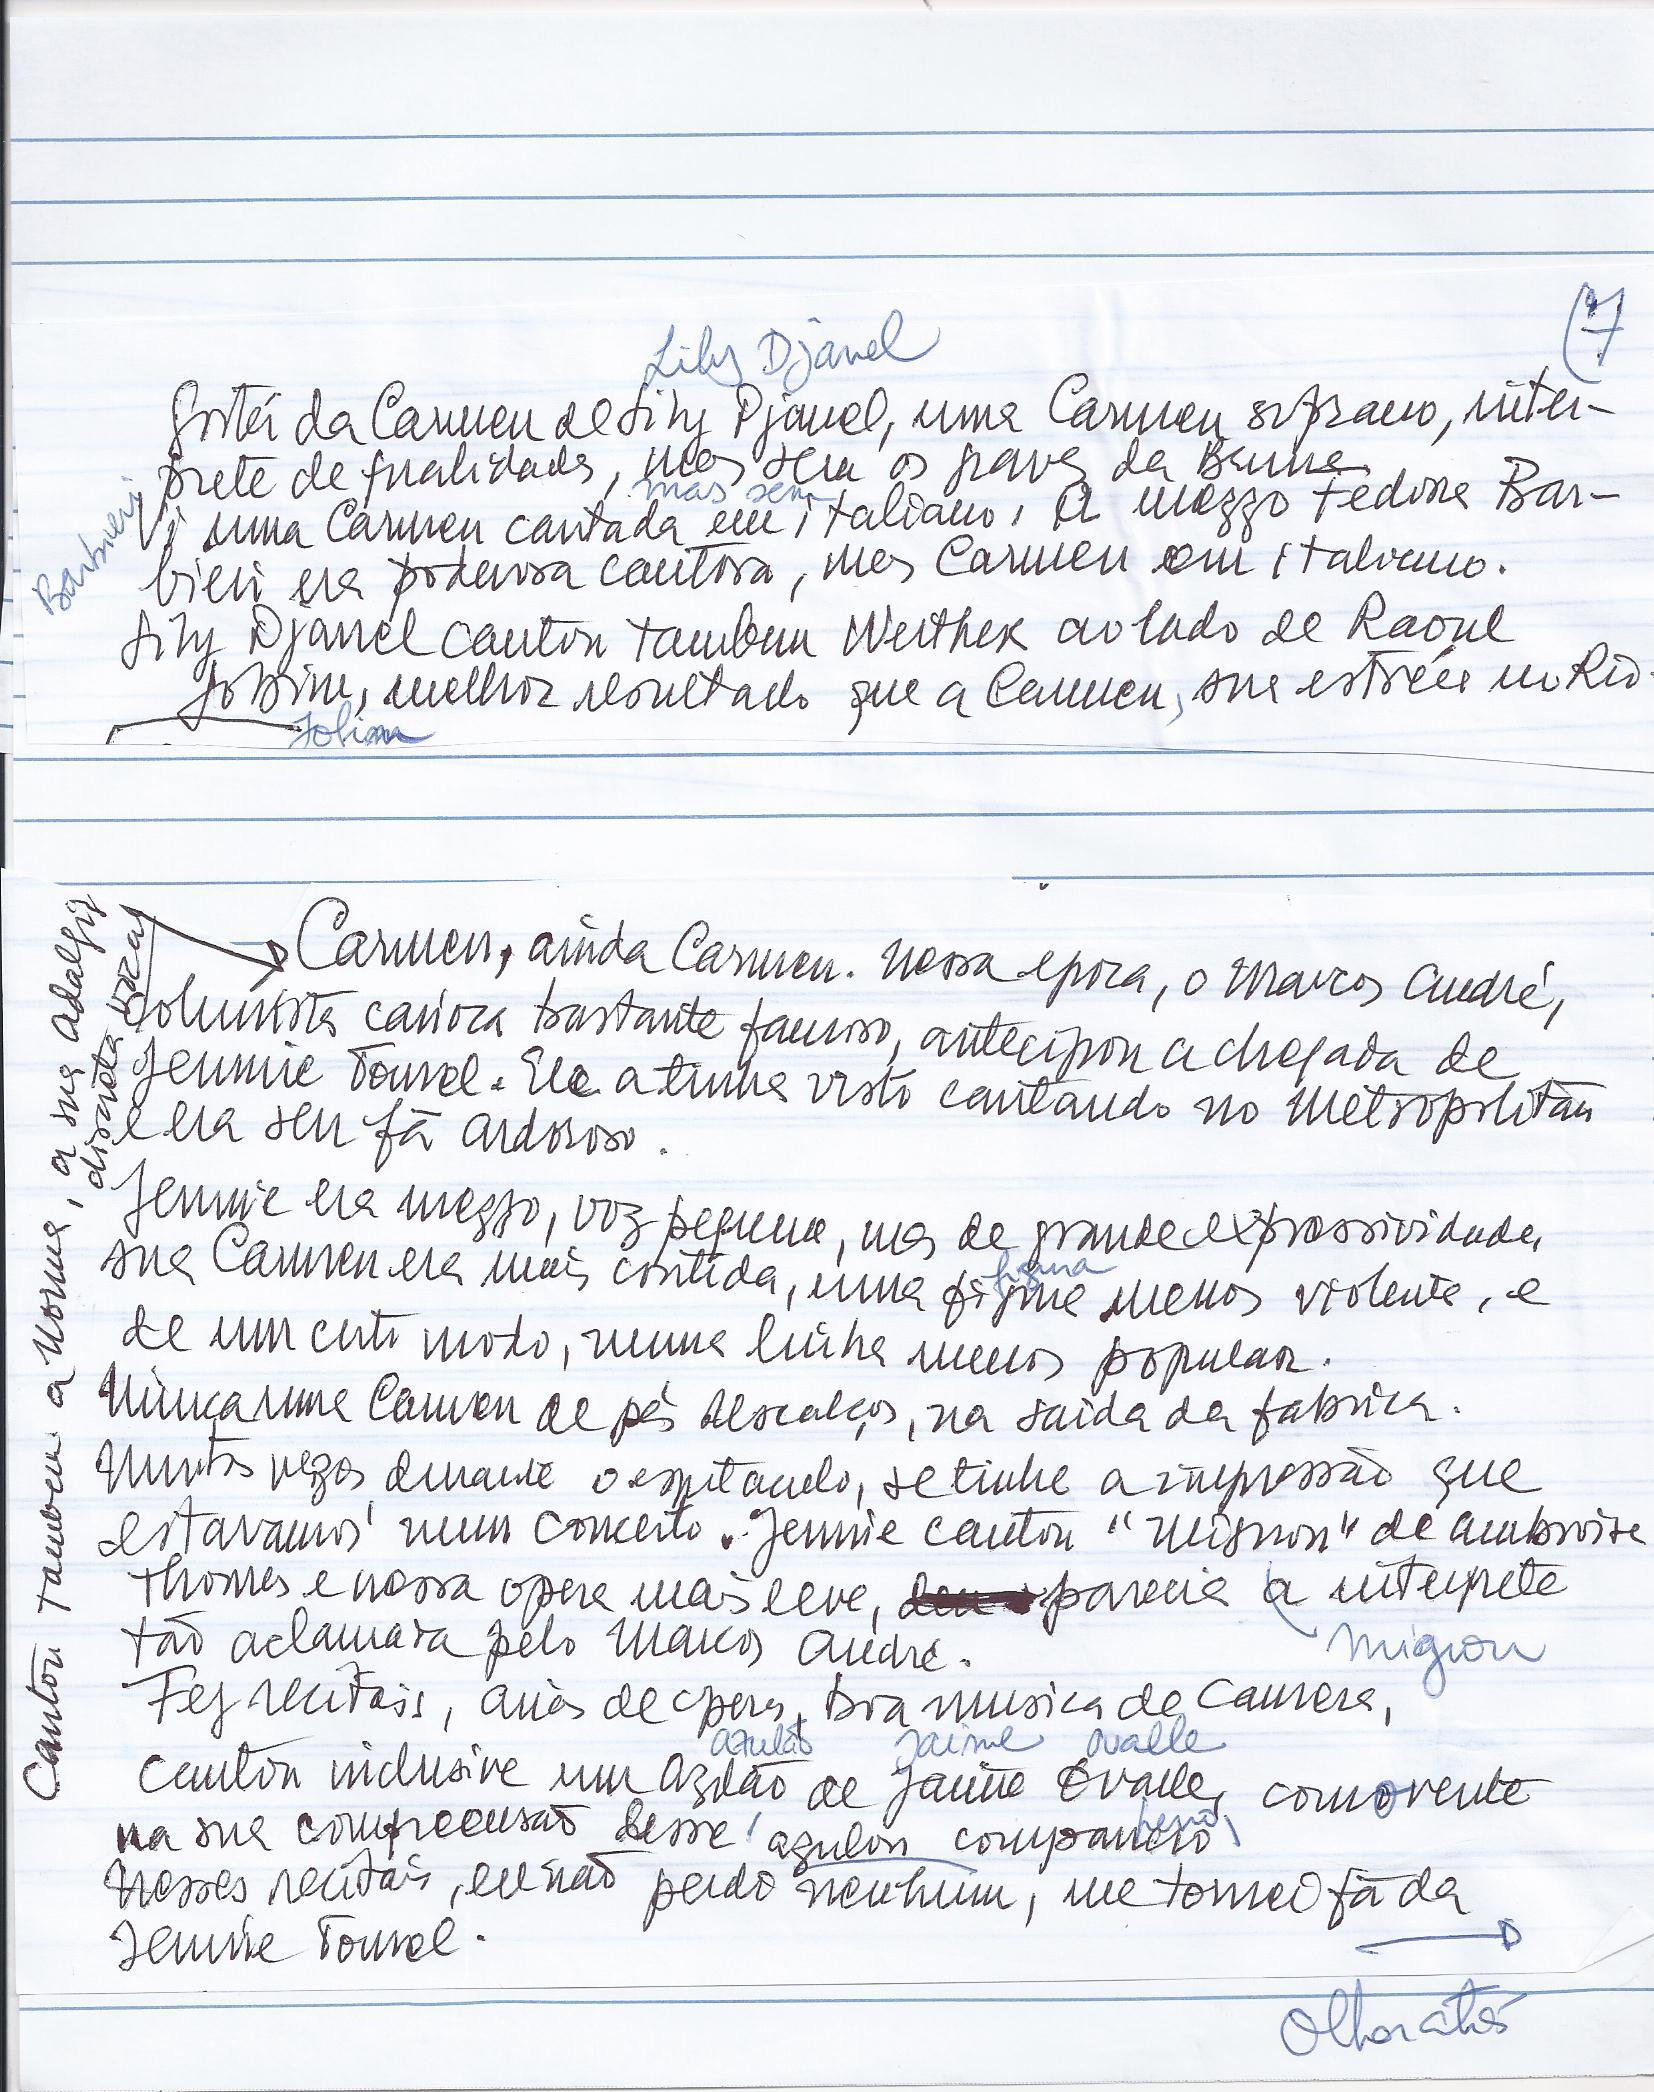 (7
Lily Djanel
Gostei da Carmen de Lily Djanel, uma Carmen soprano, intér-
prete de qualidade, mas sem os graves da
mas sem
Vi uma Carmen cantada em italiano, a mezzo Fedora Bar-
bieri era poderosa cantora, mas Carmen em italiano.
Barbieri
Lily Djanel cantou tambem Werther ao lado de Raoul
Jobim, melhor resultado que a Carmen, sua estréia no Rio.
Jobim
Carmen, ainda Carmen. Nessa epoca, o Marcos André,
colunista carioca bastante famoso, antecipou a chegada de
Jennie Tourel. Ele a tinha visto cantando no Metropolitan
e era seu fã ardoroso.
Jennie era mezzo, voz pequena, mas de grande expressividade,
sua Carmen era mais contida, uma figura menos violenta, e
figura
de um certo modo, numa linha menos popular.
Nunca uma Carmen de pés descalços, na saida da fabrica.
Muitas vezes durante o espetaculo, se tinha a impressão que
estavamos num concerto. Jennie cantou "Mignon" de Ambroise
Thomas e nessa opera mais leve, parecia a interprete
tão aclamada pelo Marcos André.
Mignon
Fez recitais, arias de opera, boa musica de camera,
azulão Jaime Ovalle
cantou inclusive um Azulão de Jaime Ovalle, comovente
na sua compreensão desse azulon companheiro
heiro,
Nesses recitais, eu não perdo nenhum, me tornei fã da
Jennie Tourel.
Olhar atrás
Cantou Tambem a Norma, a sua Adalgisa
discreta